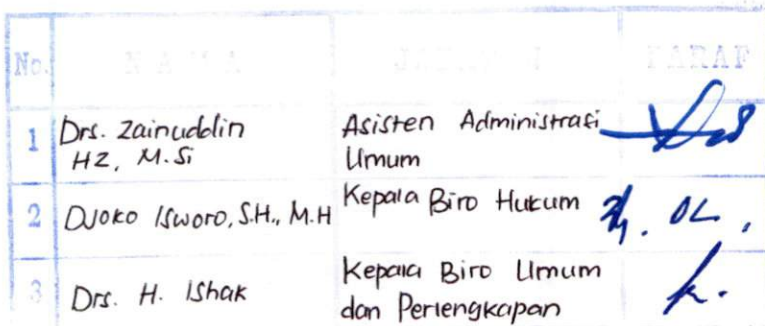 No. NAMA JABATAN PARAF
1 Drs. Zainuddin Asisten Administrasi
HZ, M.Si Umum
2 DJOKO ISWORO, S.H., M.H Kepala Biro Hukum
3 Drs. H. Ishak Kepala Biro Umum
dan Perlengkapan